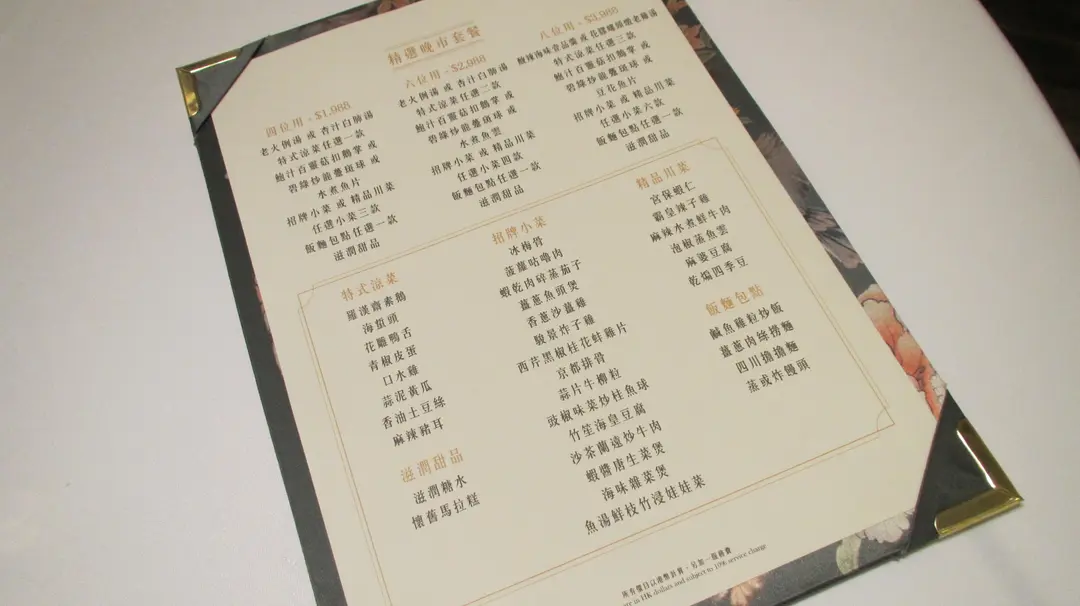 精選晚市套餐
四位用 - $1,988
老火例湯 或 杏汁白肺湯
特式涼菜任選一款
鮑汁百靈菇扣鵝掌 或
碧綠炒龍躉斑球 或
水煮魚片
招牌小菜 或 精品川菜
任選小菜三款
飯麵包點任選一款
滋潤甜品
六位用 - $2,988
老火例湯 或 杏汁白肺湯
特式涼菜任選二款
鮑汁百靈菇扣鵝掌 或
碧綠炒龍躉斑球 或
水煮魚雲
招牌小菜 或 精品川菜
任選小菜四款
飯麵包點任選一款
滋潤甜品
八位用 - $3,988
酸辣海味壹品羹 或 花膠螺頭燉老雞湯
特式涼菜任選三款
鮑汁百靈菇扣鵝掌 或
碧綠炒龍躉斑球 或
豆花魚片
招牌小菜 或 精品川菜
任選小菜六款
飯麵包點任選一款
滋潤甜品
特式涼菜
羅漢齋素鵝
海蜇頭
花雕鴨舌
青椒皮蛋
口水雞
蒜泥黃瓜
香油土豆絲
麻辣豬耳
滋潤甜品
滋潤糖水
懷舊馬拉糕
招牌小菜
冰梅骨
菠蘿咕嚕肉
蝦乾肉碎蒸茄子
薑蔥魚頭煲
香蔥沙薑雞
駿景炸子雞
西芹黑椒桂花蚌雞片
京都排骨
蒜片牛柳粒
豉椒味菜炒桂魚球
竹笙海皇豆腐
沙茶蘭遠炒牛肉
蝦醬唐生菜煲
海味雜菜煲
魚湯鮮枝竹浸娃娃菜
精品川菜
宮保蝦仁
霸皇辣子雞
麻辣水煮鮮牛肉
泡椒蒸魚雲
麻婆豆腐
乾煸四季豆
飯麵包點
鹹魚雞粒炒飯
薑蔥肉絲撈麵
四川擔擔麵
蒸或炸饅頭
所有價目以港幣計算，另加一服務費
are in HK dollars and subject to 10% service charge